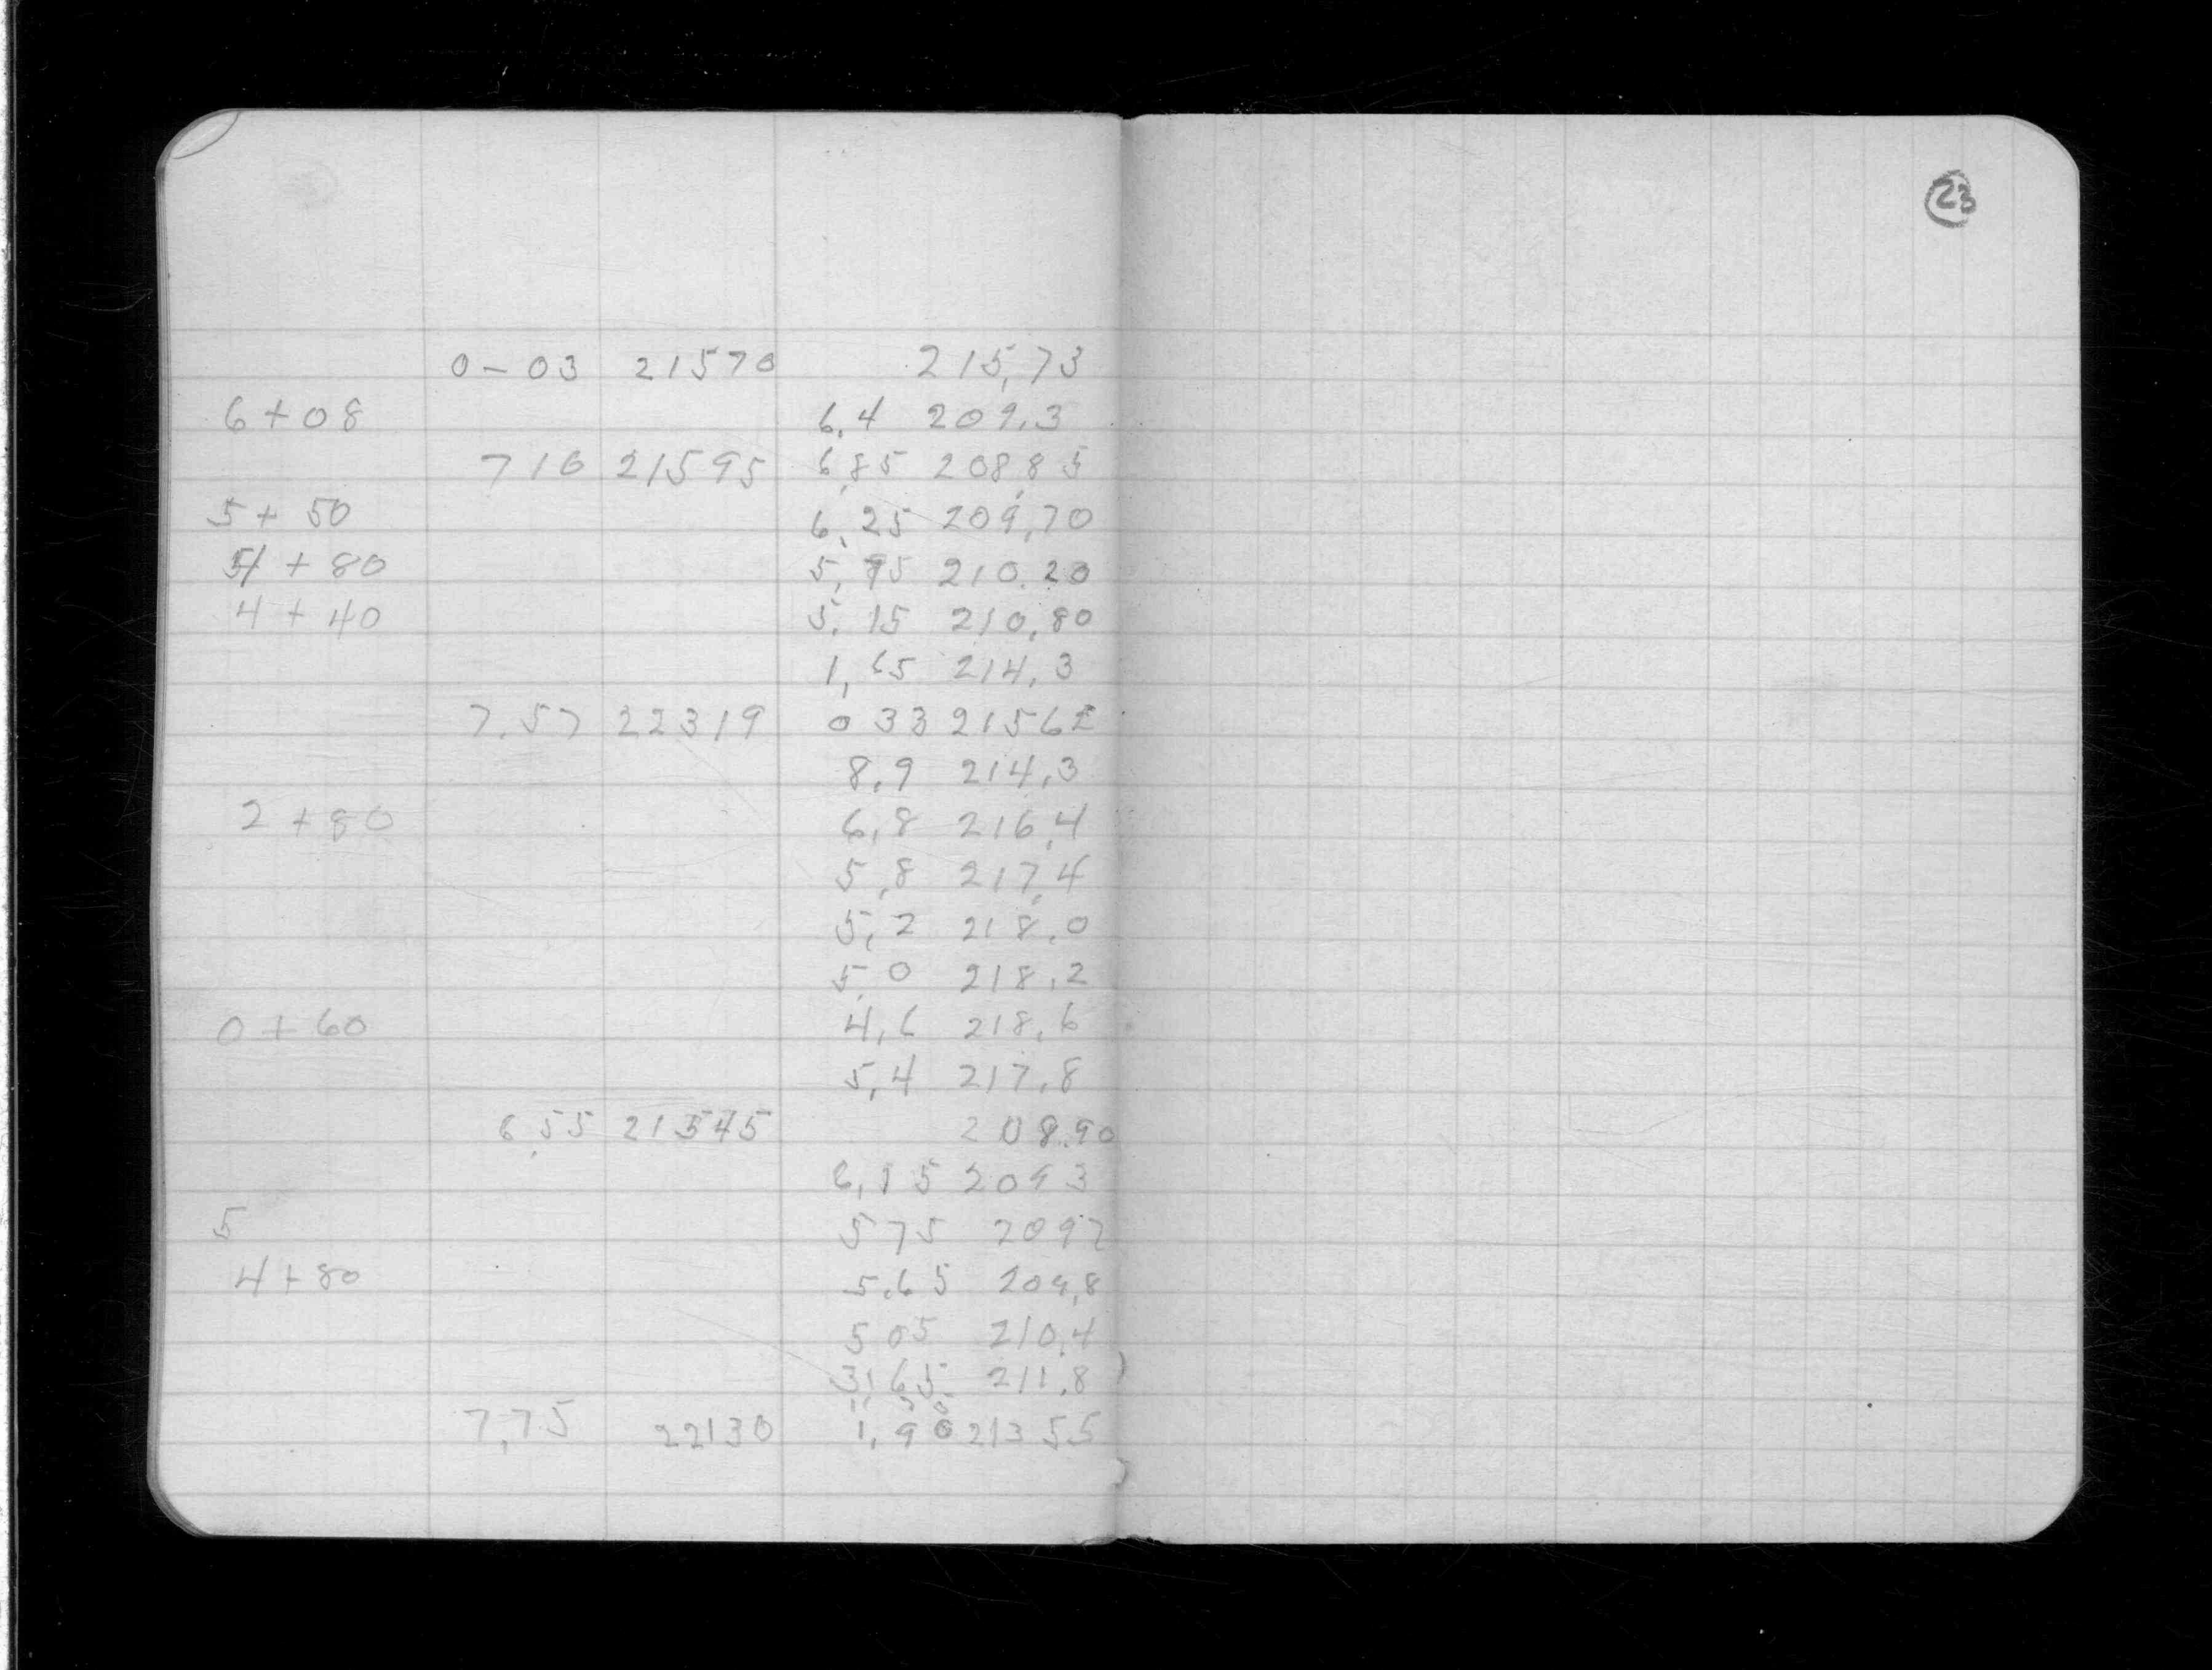 23
0 - 03 21570 215,73
6 + 08 6,4 209,3
7 16 21595 6,85 208,85
5 + 50 6,25 209,70
+ 80 5, 210.20
4 + 40 5,15 210,80
1,65 214,3
7.57 22319 0 33 2156
8,9 214,3
2 + 80 6,8 216,4
5,8 217,4
5,2 218,0
5,0 218,2
0 + 60 4,6 218,6
5,4 217,8
6,55 21545 208.90
6,15 209 3
5 5 75 209 7
4 + 80 5.65 209,8
5 05 210,4
3,65 211,8
7,75 22130 1,90 213 55